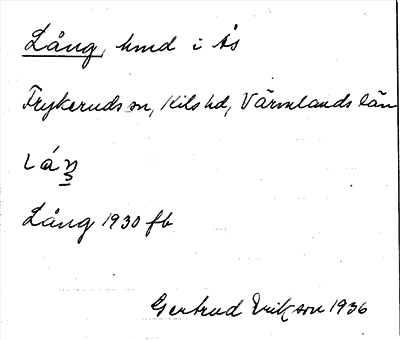 Lång, hmd i Ås
Frykeruds sn, Kils hd, Värmlands län
Lång 1930 fb
Gertrud Erikson 1936